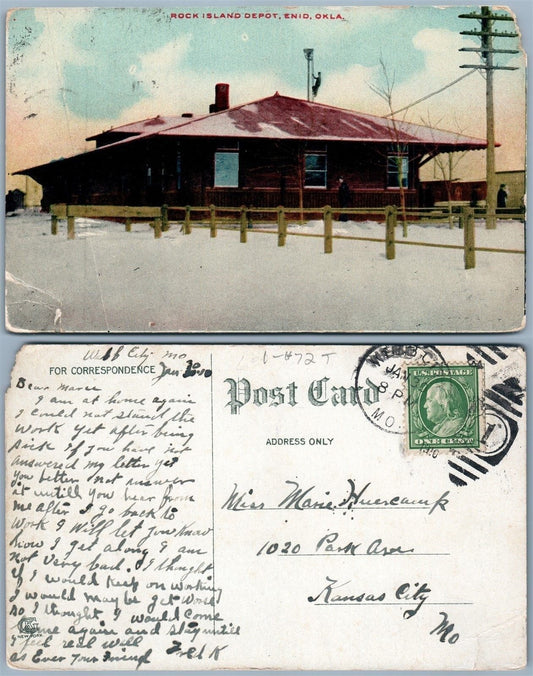 ROCK ISLAND DEPOT, ENID, OKLA.
Webb City Mo
FOR CORRESPONDENCE
Jan 30-10
Dear Marie
I am at home again
I could not stand the
work yet after being
sick if you have not
answered my letter yet
you better not answer
it untill you hear from
me after I go back to
work I will let you know
how I get along I am
not very bad. I thought
if I would keep on working
I would may be get worse
so I thought I would come
home again and stay untill
I feel real well
as Ever Your Friend
NEW YORK
1-472T
Post Card
ADDRESS ONLY
WEBB C
JAN 3
8 P
MO.
U.S. POSTAGE
ONE CENT
1
Miss Marie Huercamp
1020 Park Ave
Kansas City
Mo